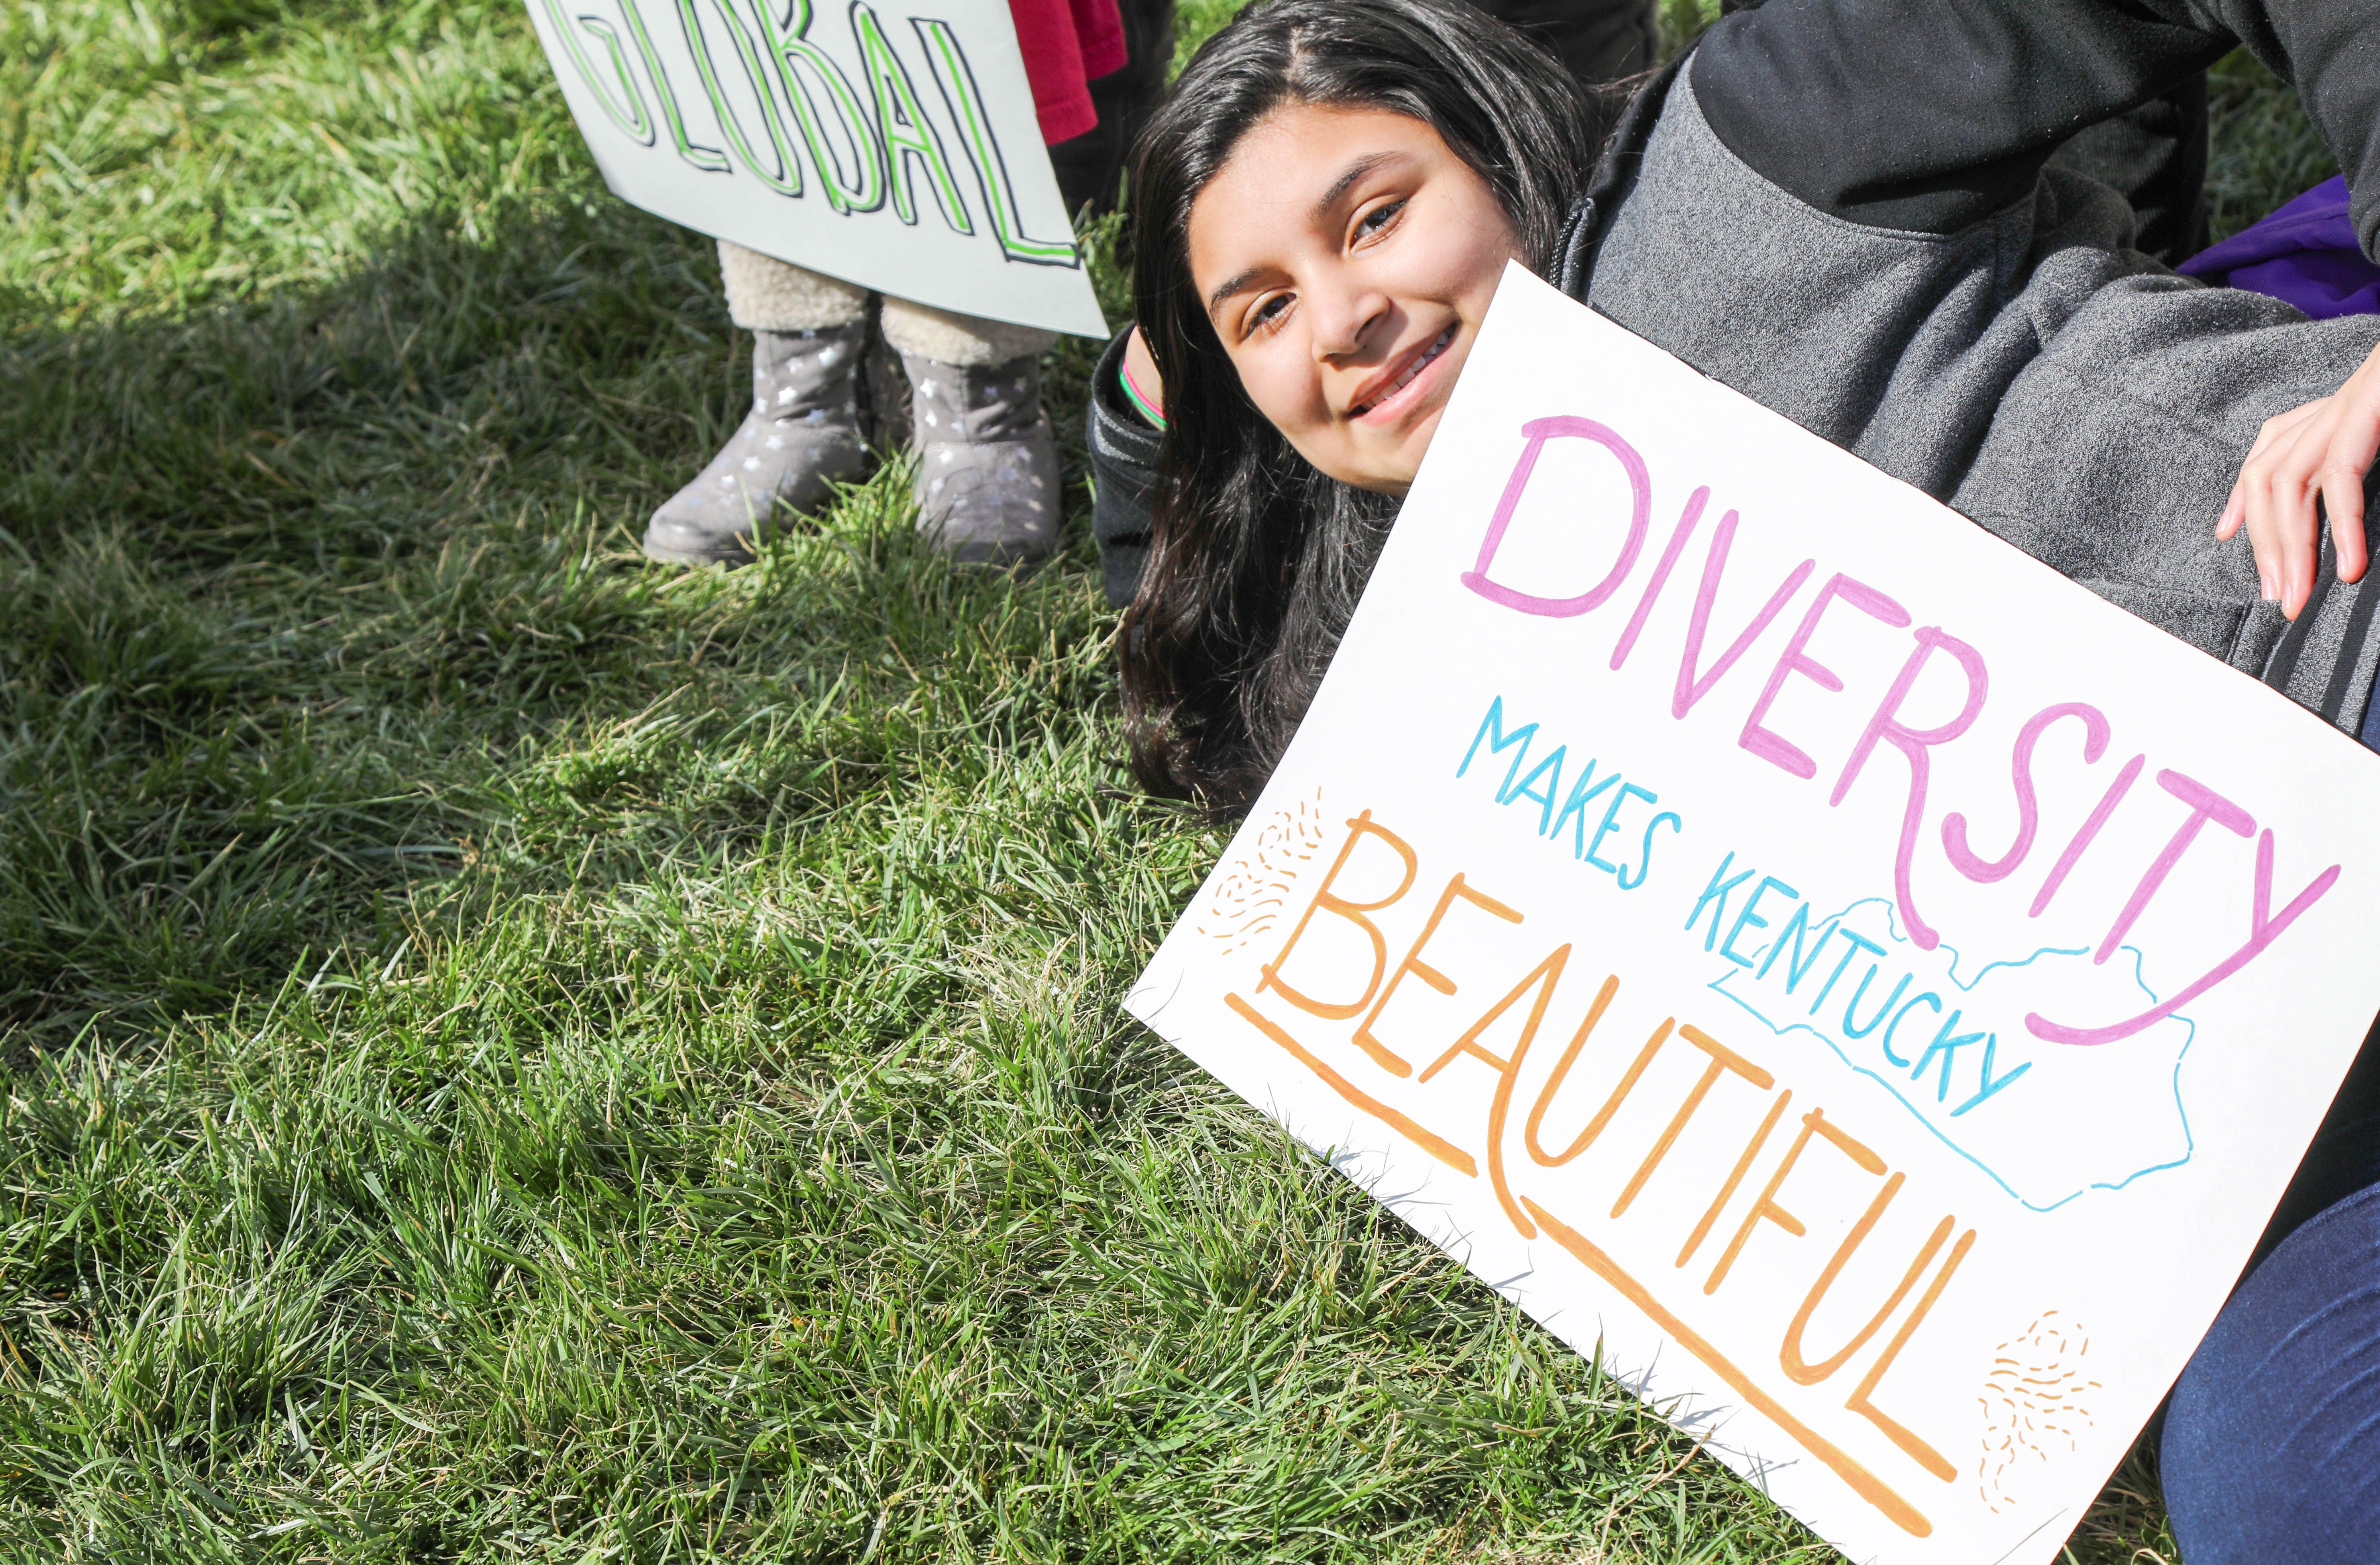 GLOBAL
DIVERSITY
MAKES KENTUCKY
BEAUTIFUL